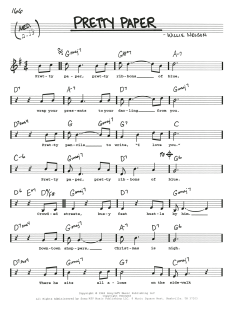 166
PRETTY PAPER
- WILLIE NELSON
Gmaj7 G(#5) A-7
Pret-ty pa-per, pret-ty rib-bons of blue.
D7 A-7 D7 Gmaj7
Wrap your pres-ents to your dar-ling from you.
G Gmaj7 G7 C
Pret-ty pen-cils to write, "I love you."
C-6 Gmaj7 D7 G6
Pret-ty pa-per, pret-ty rib-bons of blue.
D7 Gmaj7
Crowd-ed streets, bus-y feet hus-tle by him.
D7 Gmaj7
Down-town shop-pers, Christ-mas is nigh.
Gmaj7 C
There he sits all a-lone on the side-walk